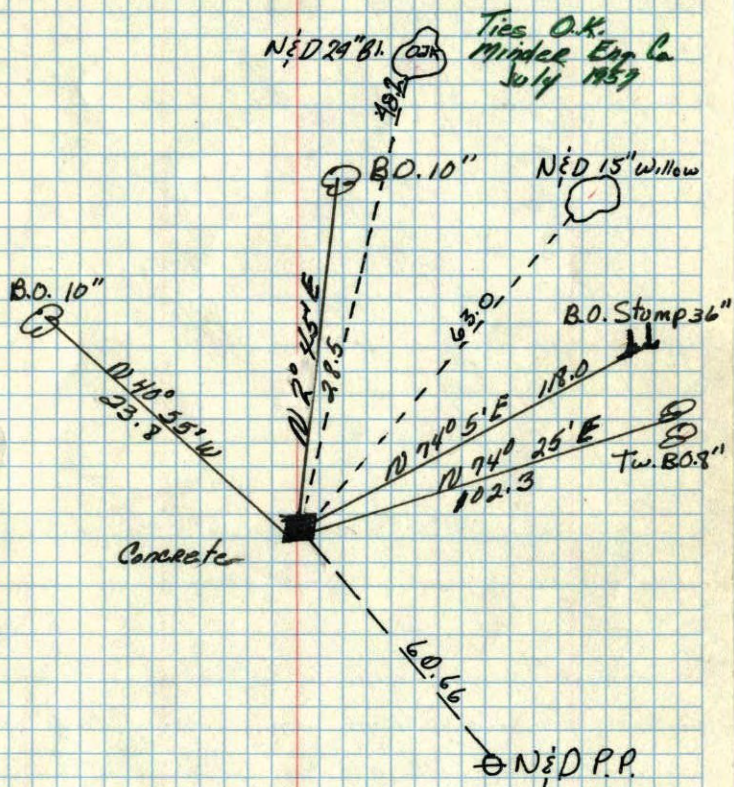 Ties O.K.
Minder Eng Co
July 1957
N&D 24" Bl.
OAK
48.2
B.O. 10"
N&D 15" Willow
B.O. 10"
N 2° 45' E
28.5
63.0
B.O. Stump 36"
N 40° 55' W
23.8
N 74° 5' E 118.0
N 74° 25' E
102.3
Tw. B.O. 8"
Concrete
60.66
N&D P.P.